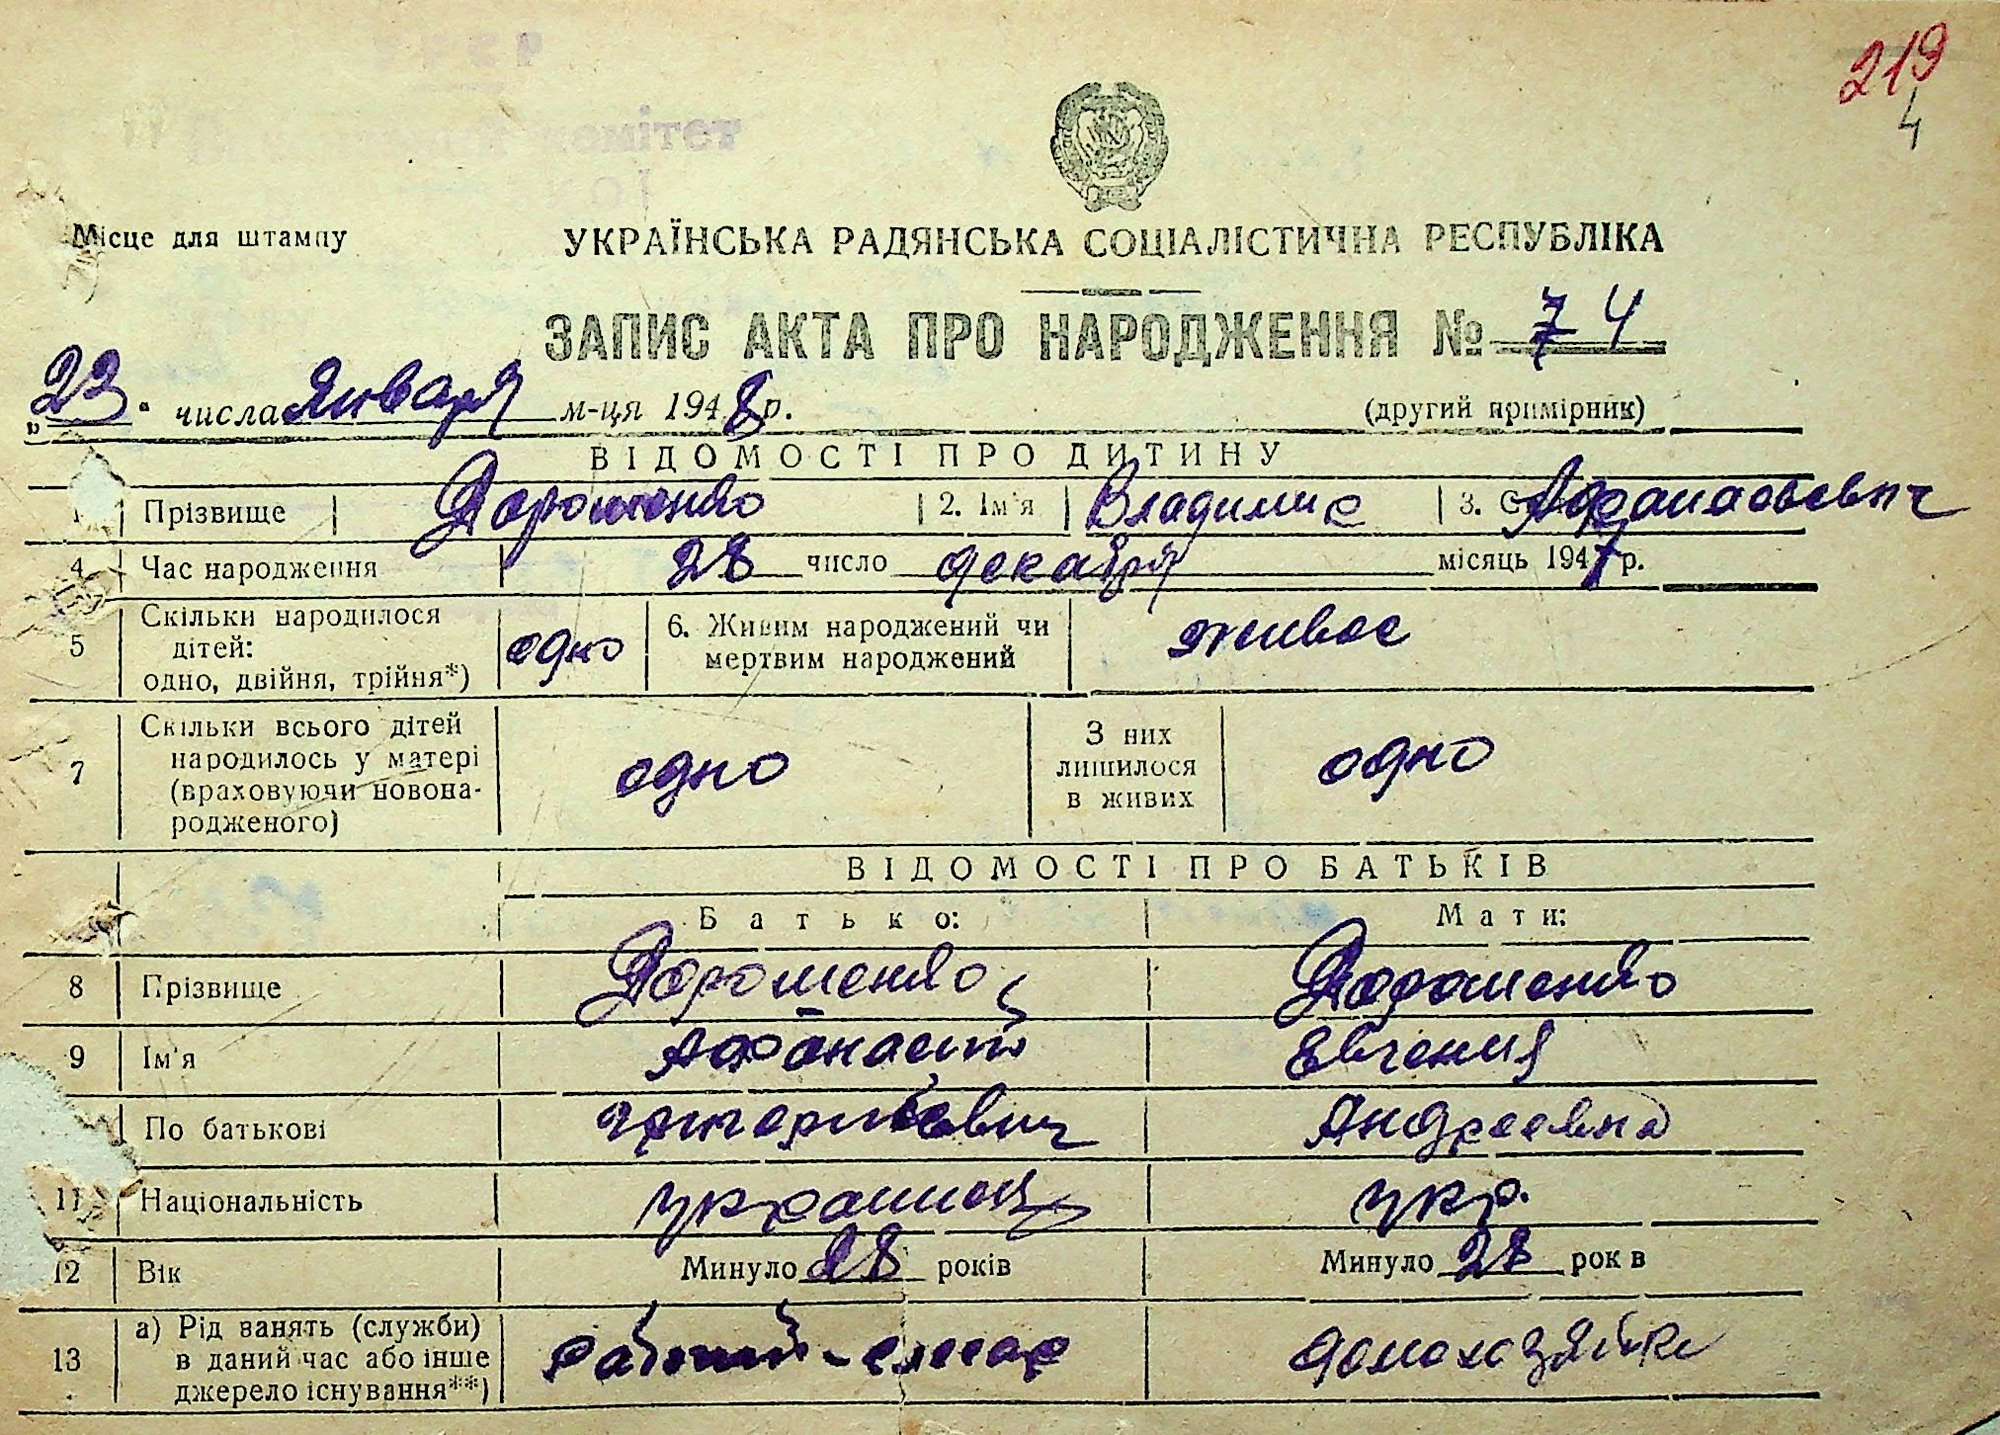 219
4
комітет
Місце для штампу
УКРАЇНСЬКА РАДЯНСЬКА СОЦІАЛІСТИЧНА РЕСПУБЛІКА
ЗАПИС АКТА ПРО НАРОДЖЕННЯ № 74
„23" числа января м-ця 1948 р. (другий примірник)
ВІДОМОСТІ ПРО ДИТИНУ
Прізвище Дорошенко 2. Ім'я Владимир 3. Афанасьевич
4 Час народження 28 число декабря місяць 1947 р.
5 Скільки народилося дітей: одно, двійня, трійня*) одно 6. Живим народжений чи мертвим народжений живое
7 Скільки всього дітей народилось у матері (враховуючи новонародженого) одно З них лишилося в живих одно
ВІДОМОСТІ ПРО БАТЬКІВ
Батько: Мати:
8 Прізвище Дорошенко Дорошенко
9 Ім'я Афанасий Евгения
По батькові Григорьевич Андреевна
11 Національність украинец укр.
12 Вік Минуло 28 років Минуло 28 рок в
13 а) Рід занять (служби) в даний час або інше джерело існування**) рабочий-слесар домохозяйка